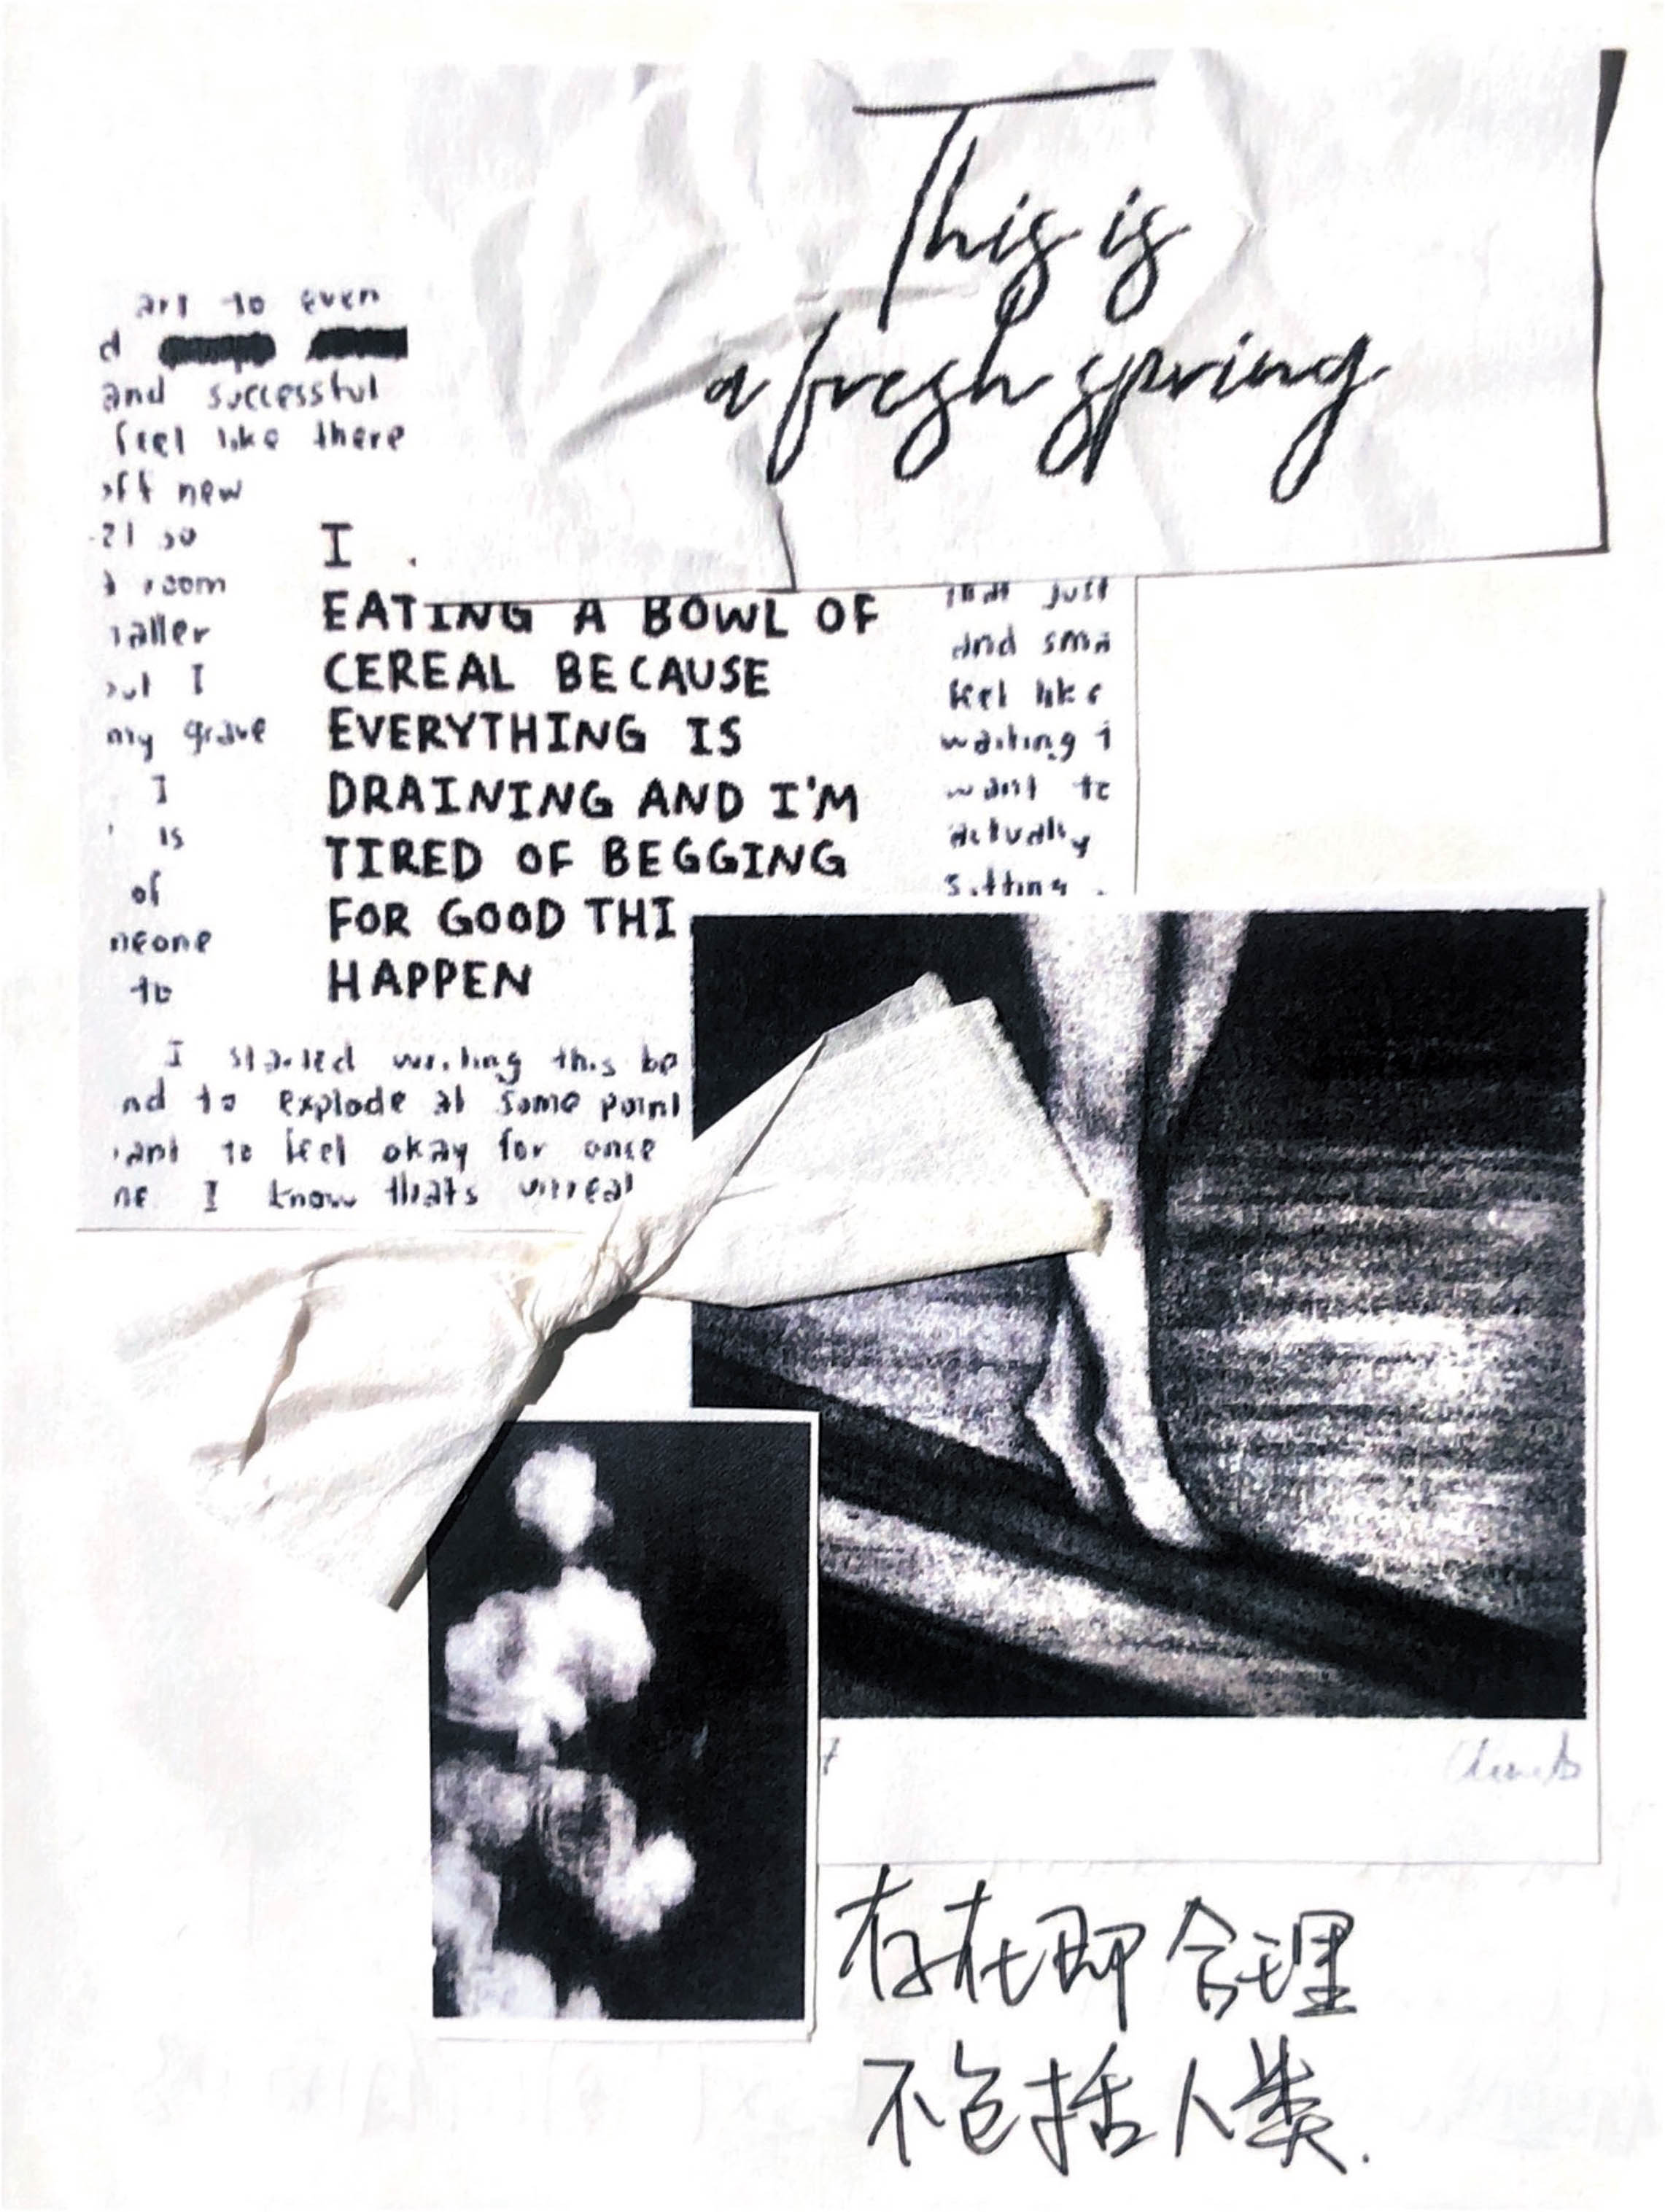 This is
a fresh spring
art to even
d
and successful
feel like there
off new
so
room
aller
but I
my grave
I
is
of
neone
to
I
EATING A BOWL OF
CEREAL BECAUSE
EVERYTHING IS
DRAINING AND I'M
TIRED OF BEGGING
FOR GOOD THI
HAPPEN
that just
and sma
feel like
waiting
want to
actually
sitting
I started writing this be
nd to explode at some point
ant to feel okay for once
me I know thats unreal
存在即合理
不包括人类.